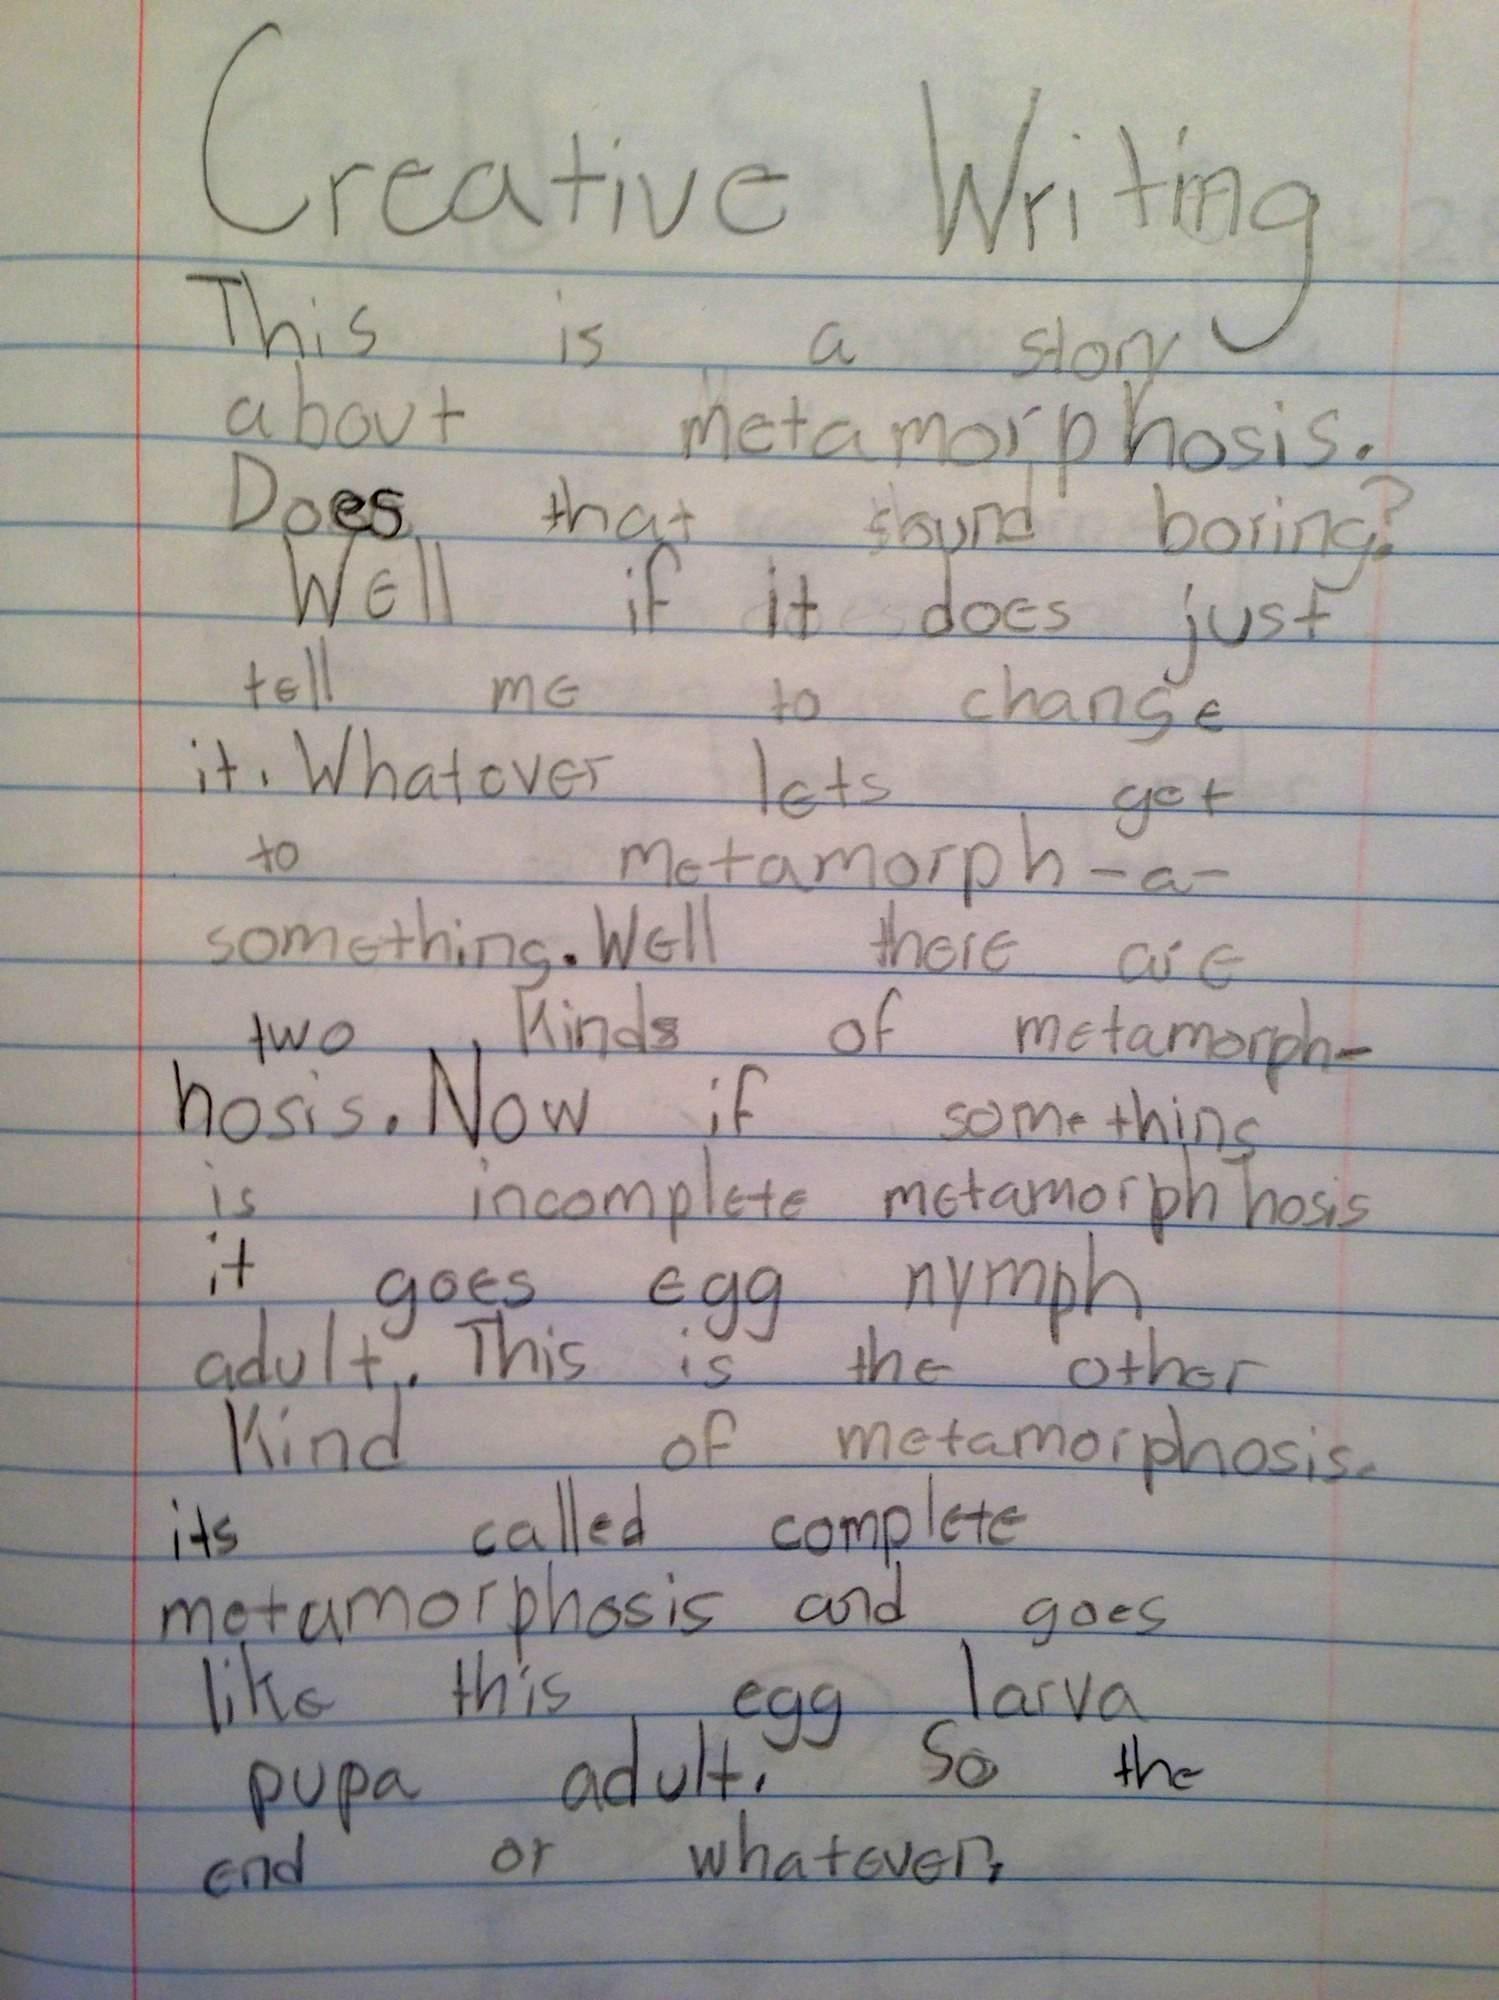 Creative Writing
This is a story
about metamorphosis.
Does that sound boring?
Well if it does just
tell me to change
it. Whatever lets get
to metamorph-a-
something. Well there are
two kinds of metamorph-
hosis. Now if something
is incomplete metamorphhosis
it goes egg nymph
adult. This is the other
Kind of metamorphosis.
its called complete
metamorphosis and goes
like this egg larva
pupa adult. So the
end or whatever.